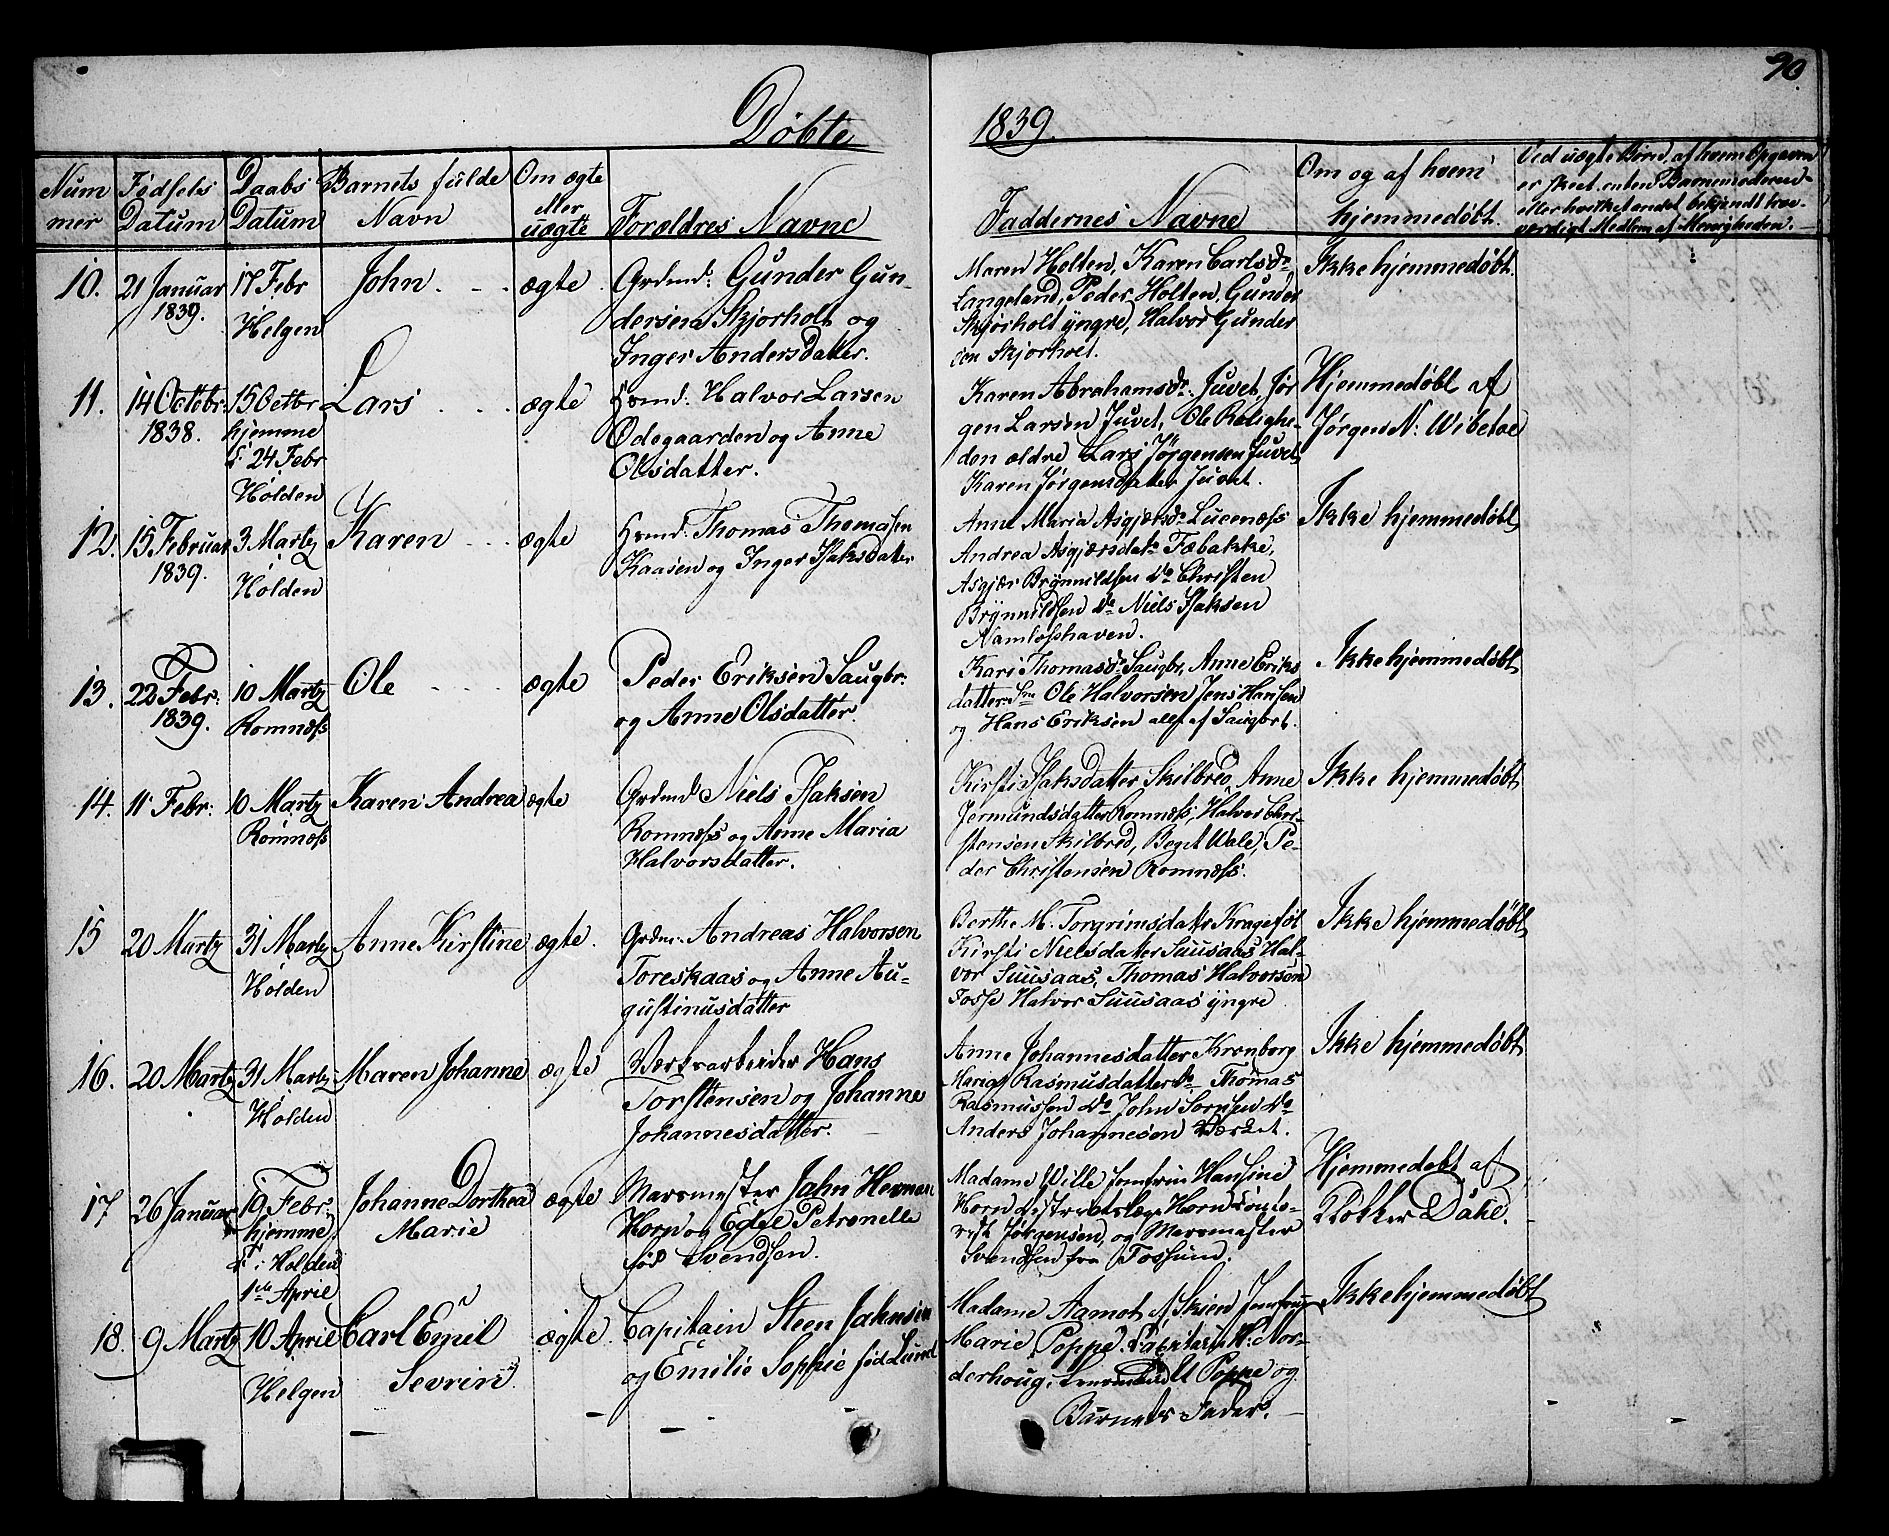 90.
Døbte
1839.
Num
mer
Fødsels
Datum
Daabs
Datum
Barnets fulde
Navn
Om ægte
eller
uægte
Forældres Navne
Faddernes Navne
Om og af hvem
hjemmedøbt.
Ved uægte Børn, af hvem Opgaven
er skeet, enten Barnemoderen
eller hvilket andet bekjendt troe-
værdigt Medlem af Menigheden.
10.
21 Januar
1839.
17 Febr
Helgen
John
ægte
Grdmd: Gunder Gun-
dersen Skjorholt og
Inger Andersdatter.
Maren Holten, Karen Carlsd:
Langeland, Peder Holten, Gunder
Skjorholt yngre, Halvor Gunder
sen Skjorholt.
Ikke hjemmedøbt.
11.
14 Octobr:
1838.
15 Octbr
hjemme
24 Febr
Holden
Lars
ægte
Hsmd: Halvor Larsen
Ødegaarden og Anne
Olsdatter.
Karen Abrahamsd: Juvet, Jør
gen Larsen Juvet, Ole Rolighe-
den ældre Lars Jørgensen Juvet,
Karen Jørgensdatter Juvet.
Hjemmedøbt af
Jørgen N: Wibetoe
12.
15 Februar
1839.
3 Martz
Holden
Karen
ægte
Hsmd: Thomas Thomassen
Kaasen og Inger Isaksdatter
Anne Maria Asgjærsd: Lucenæss
Andrea Asgjærsdatr Fæbakke,
Asgjær Brynnildsen do Christen
Brynnildsen do Niels Isaksen
Namløshaven.
Ikke hjemmedøbt
13.
22 Febr:
1839.
10 Martz
Romnæss
Ole
ægte
Peder Eriksen Saugbr:
og Anne Olsdatter.
Kari Thomasd: Saugbr, Anne Eriks
datter Ole Halvorsen Jens Hansen
og Hans Eriksen alle af Saugbrt.
Ikke hjemmedøbt
14.
11 Febr:
10 Martz
Romnæss
Karen Andrea
ægte
Grdmd: Niels Isaksen
Romnæss og Anne Maria
Halvorsdatter.
Kirsti Isaksdatter Skilbred, Anne
Jermundsdatter Romnæss, Halvor Chri-
stensen Skilbred, Beget Wale, Pe-
der Christensen Romnæss.
Ikke hjemmedøbt
15
20 Martz
31 Martz
Holden
Anne Kirstine
ægte.
Grdm: Andreas Halvorsen
Toreskaas og Anne Au-
gustinusdatter
Berthe M. Torgrimsdatr
Kirsti Nielsdatter Suusaas Hal-
vor Suusaas, Thomas Halvorsen
Fosse Halvor Suusaas yngre
Ikke hjemmedøbt
16.
20 Martz
31 Martz
Holden
Maren Johanne
ægte
Verksarbeider Hans
Torstensen og Johanne
Johannesdatter.
Anne Johannesdatter Kronborg
Rasmusdatter do, Thomas
Rasmussen do John do
Anders Johannesen Værket.
Ikke hjemmedøbt
17
26 Januar
19 Febr:
hjemme,
i Holden
1ste April
Johanne Dorthea
Marie
ægte
Marsmester Jahn Herman
Horn og Petronelle
fød Svendsen.
Madame Wille Jomfru Hansine
Horn districtslæge Horn
Jørgensen, og Marsmester
Svendsen fra Fossum.
Hjemmedøbt af
Klokker Dahl.
18.
9 Martz
10 April
Helgen
Carl Emil
Sevrin
ægte
Capitain Steen Jahnsen
og Emilie Sophie fød Lund
Madame Aamot Skien Jomfru
Marie Poppe. Capitain H: Nor-
derhoug, Poppe og
Barnets Fader.
Ikke hjemmedøbt